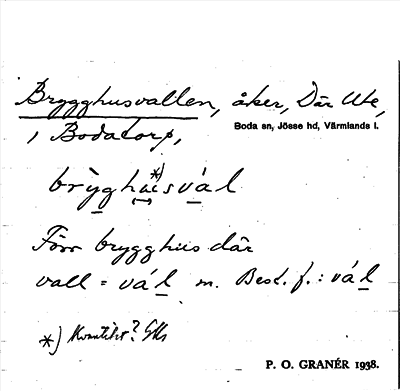 Brygghusvallen, åker, Där Ute,
i Bodatorp,
Boda sn, Jösse hd, Värmlands l.
*)
brỳghùsvàl
Förr brygghus där
vall = vál m. Best. f. : vál
*) Kvantitet?
P. O. GRANÉR 1938.